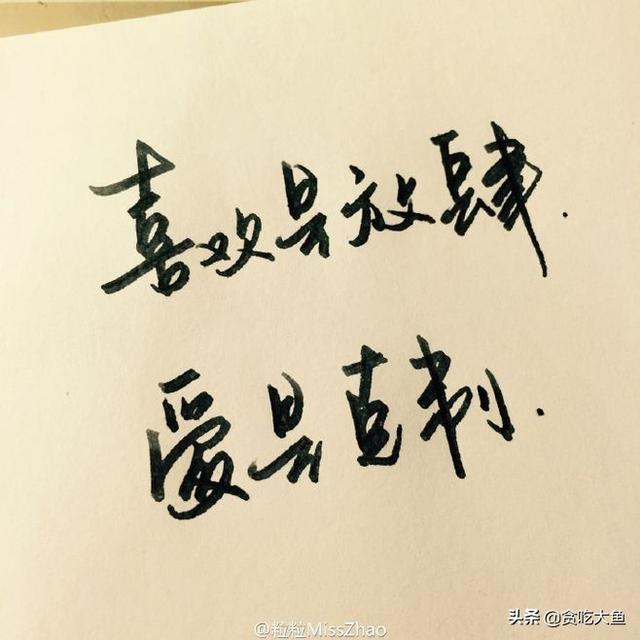 喜欢是放肆.
爱是克制.
@粒粒MissZhao
头条 @贪吃大鱼